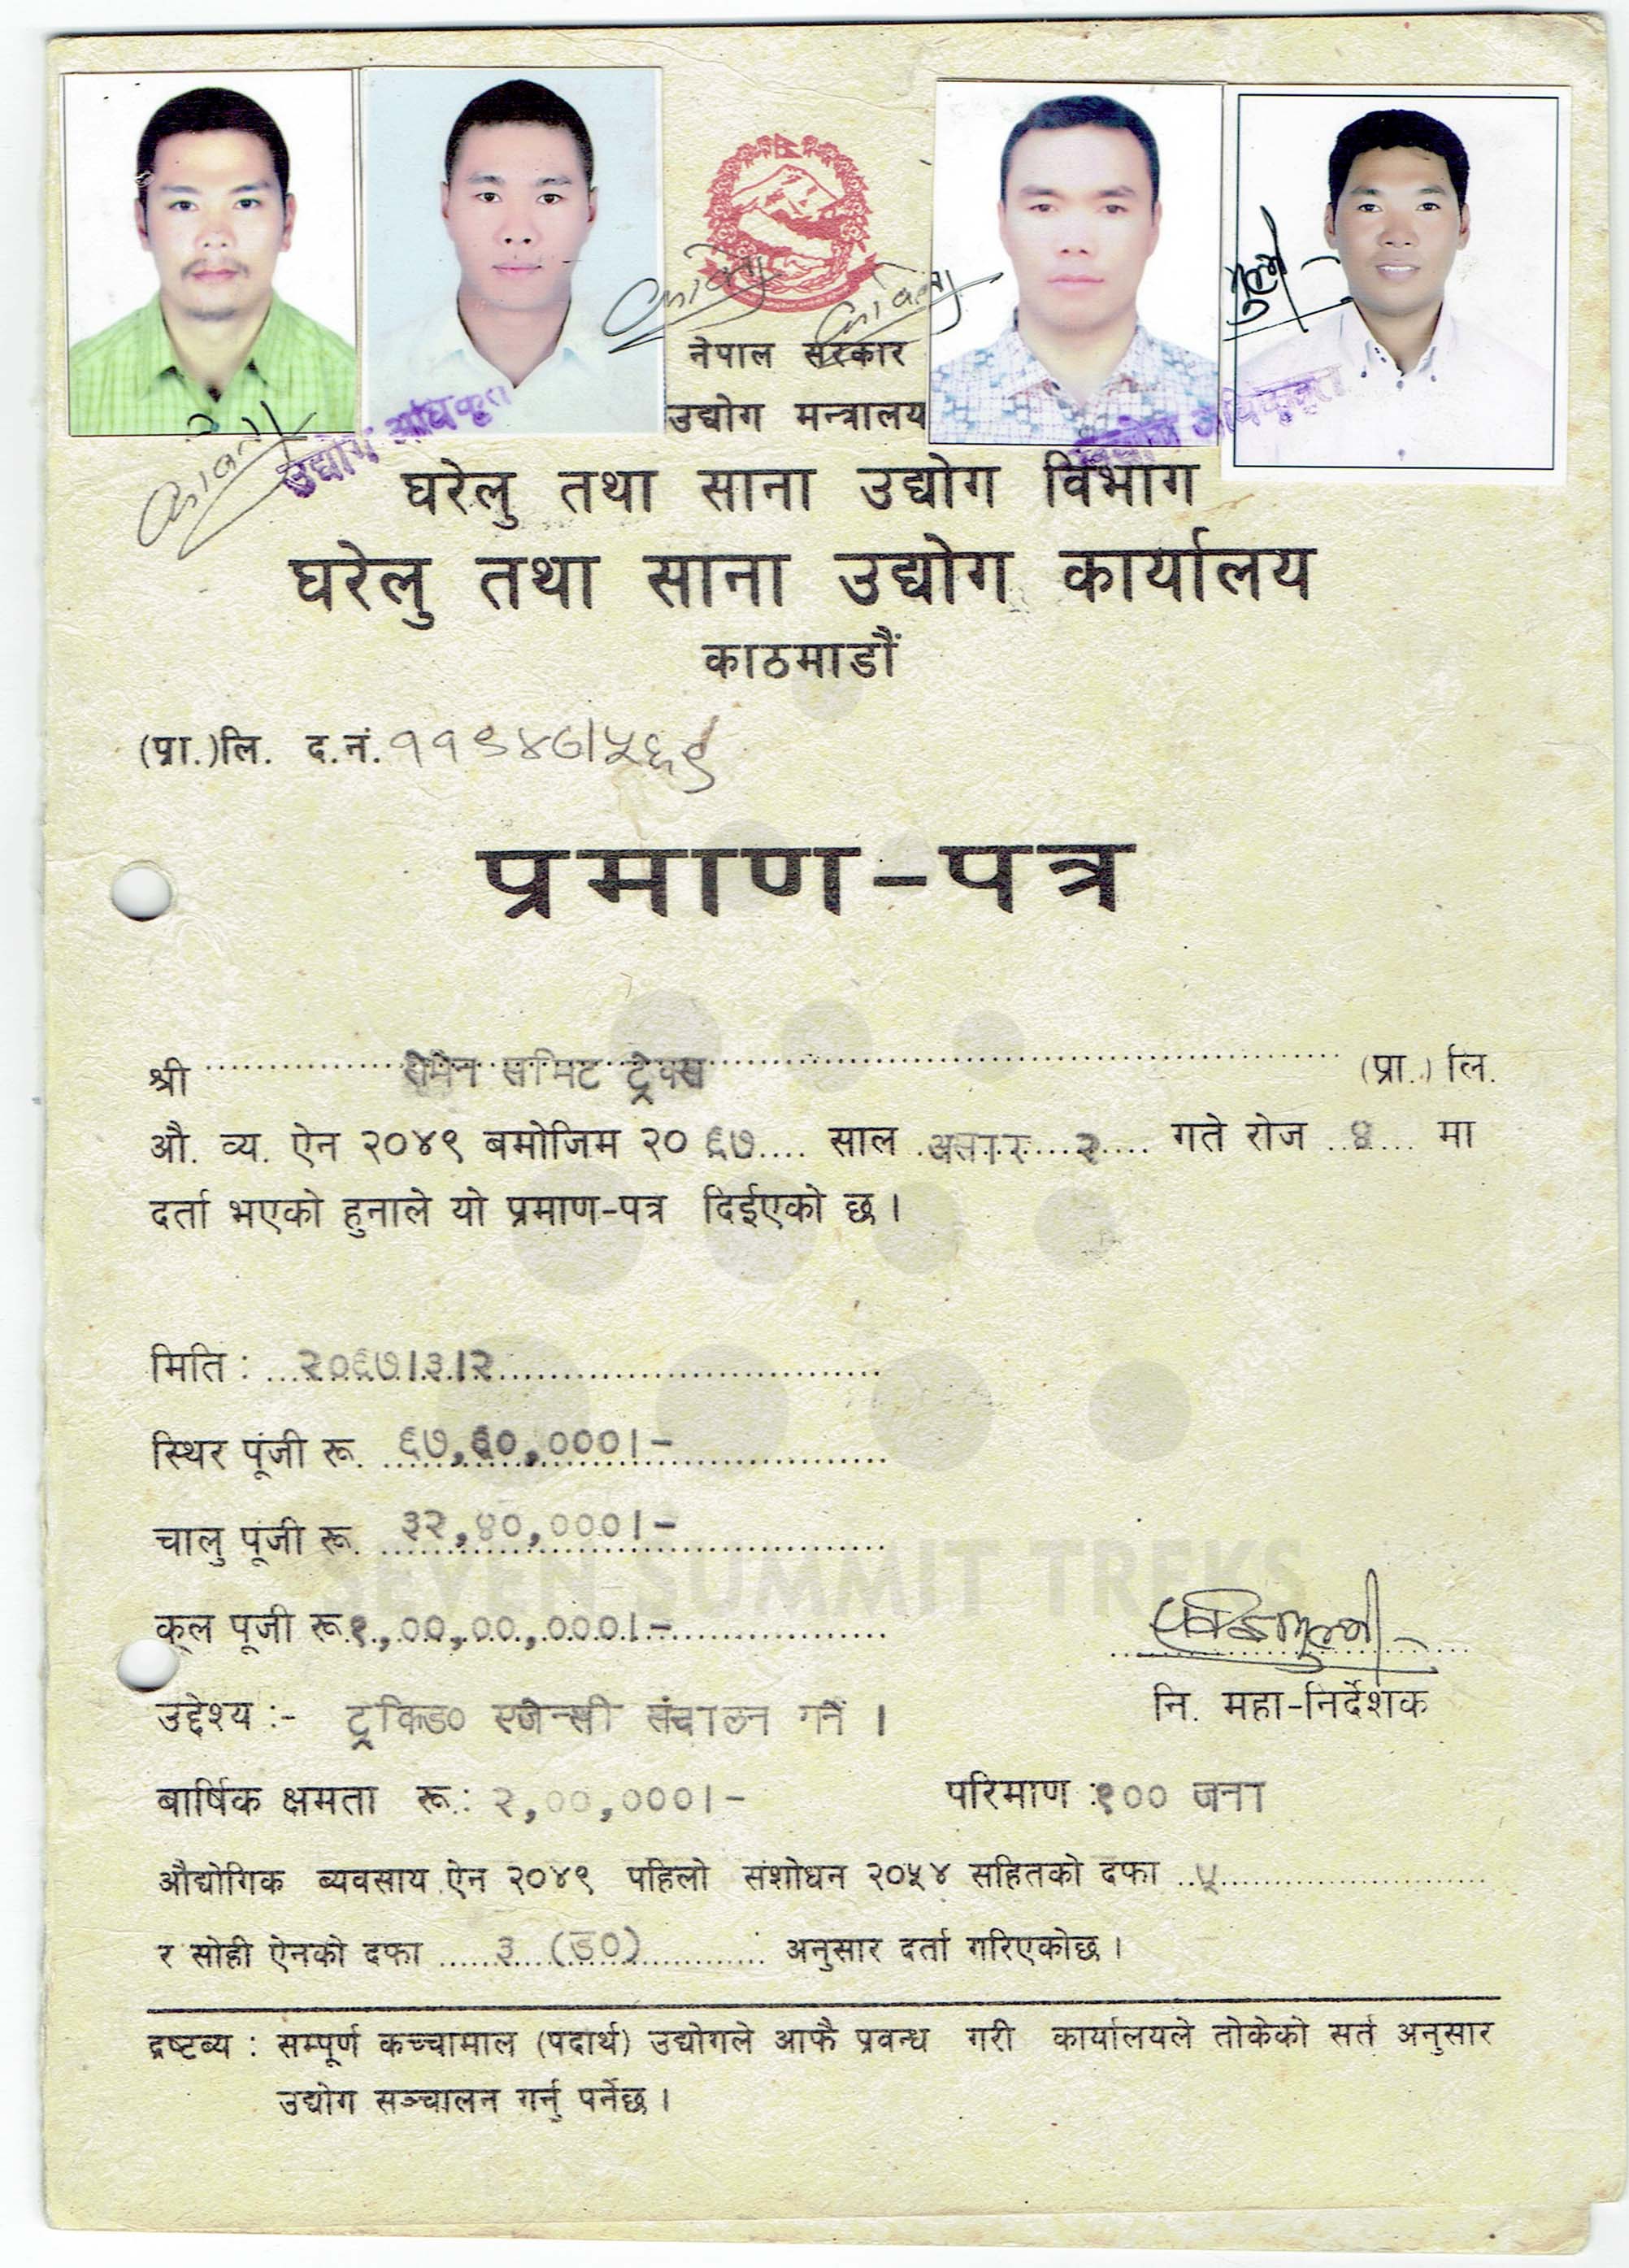 नेपाल सरकार
उद्योग मन्त्रालय
उद्योग अधिकृत
उद्योग अधिकृत
घरेलु तथा साना उद्योग विभाग
घरेलु तथा साना उद्योग कार्यालय
काठमाडौं
(प्रा.)लि. द.नं. ११९४७/५६९
प्रमाण-पत्र
श्री सेभेन समिट ट्रेक्स (प्रा.) लि.
औ. व्य. ऐन २०४९ बमोजिम २० ६७.... साल असार २ गते रोज ४ मा
दर्ता भएको हुनाले यो प्रमाण-पत्र दिईएको छ ।
मिति : २०६७।३।२
स्थिर पूंजी रू. ६७,६०,०००।-
चालु पूंजी रू. ३२,४०,०००।-
SEVEN SUMMIT TREKS
कूल पूजी रू. १,००,००,०००।-
नि. महा-निर्देशक
उद्देश्य :- ट्रेकिङ० एजेन्सी संचालन गर्ने ।
बार्षिक क्षमता रू.: २,००,०००।- परिमाण : १०० जना
औद्योगिक ब्यवसाय ऐन २०४९ पहिलो संशोधन २०५४ सहितको दफा ५
र सोही ऐनको दफा ३ (ङ०) अनुसार दर्ता गरिएकोछ ।
द्रष्टब्य : सम्पूर्ण कच्चामाल (पदार्थ) उद्योगले आफै प्रवन्ध गरी कार्यालयले तोकेको सर्त अनुसार
उद्योग सञ्चालन गर्नु पर्नेछ ।